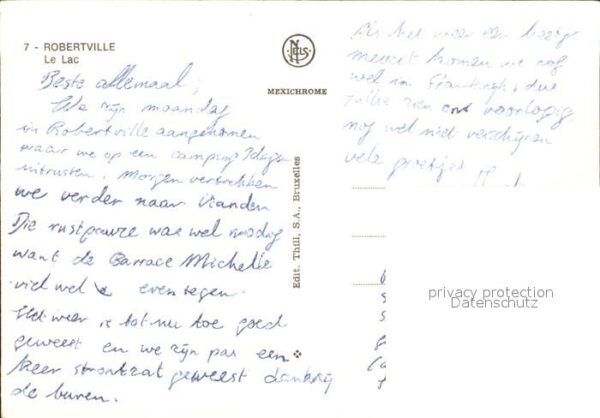 7 - ROBERTVILLE
Le Lac
MEXICHROME
Beste allemaal,
We zijn maandag
in Robertville aangekomen
waar we op een camping 3 dagen
uitrusten. Morgen vertrekken
we verder naar Vianden
Die rustpauze was wel nodig
want de Barrace Michelle
viel wel even tegen.
Het weer is tot nu toe goed
geweest en we zijn pas een
keer strontzat geweest dankzij
de buren.
Als het weer een beetje
meewit komen we nog
wel in Frankrijk, dus
jullie zien ons voorlopig
nog wel niet verschijnen
vele groetjes
Edit. Thill, S.A., Bruxelles
privacy protection
Datenschutz